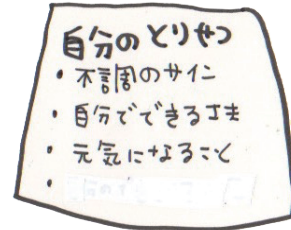 自分のとりせつ
・不調のサイン
・自分でできる工夫
・元気になること
・